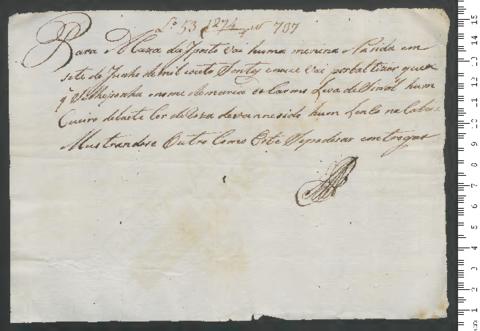 Lº 53 1274 nº 797
Para a Meza da Santa vai huma menina Nasida em
sete de Junho de mil e oito Sentos e nove vai por baltizar e quer
q Se lhe ponha o nome de maria do Carmo Leva de Sinal hum
Cueiro de baeta Cor de Roza desvannesido hum Lenso na Cabesa
Mustrandose Outro Como Este Se podera entregar